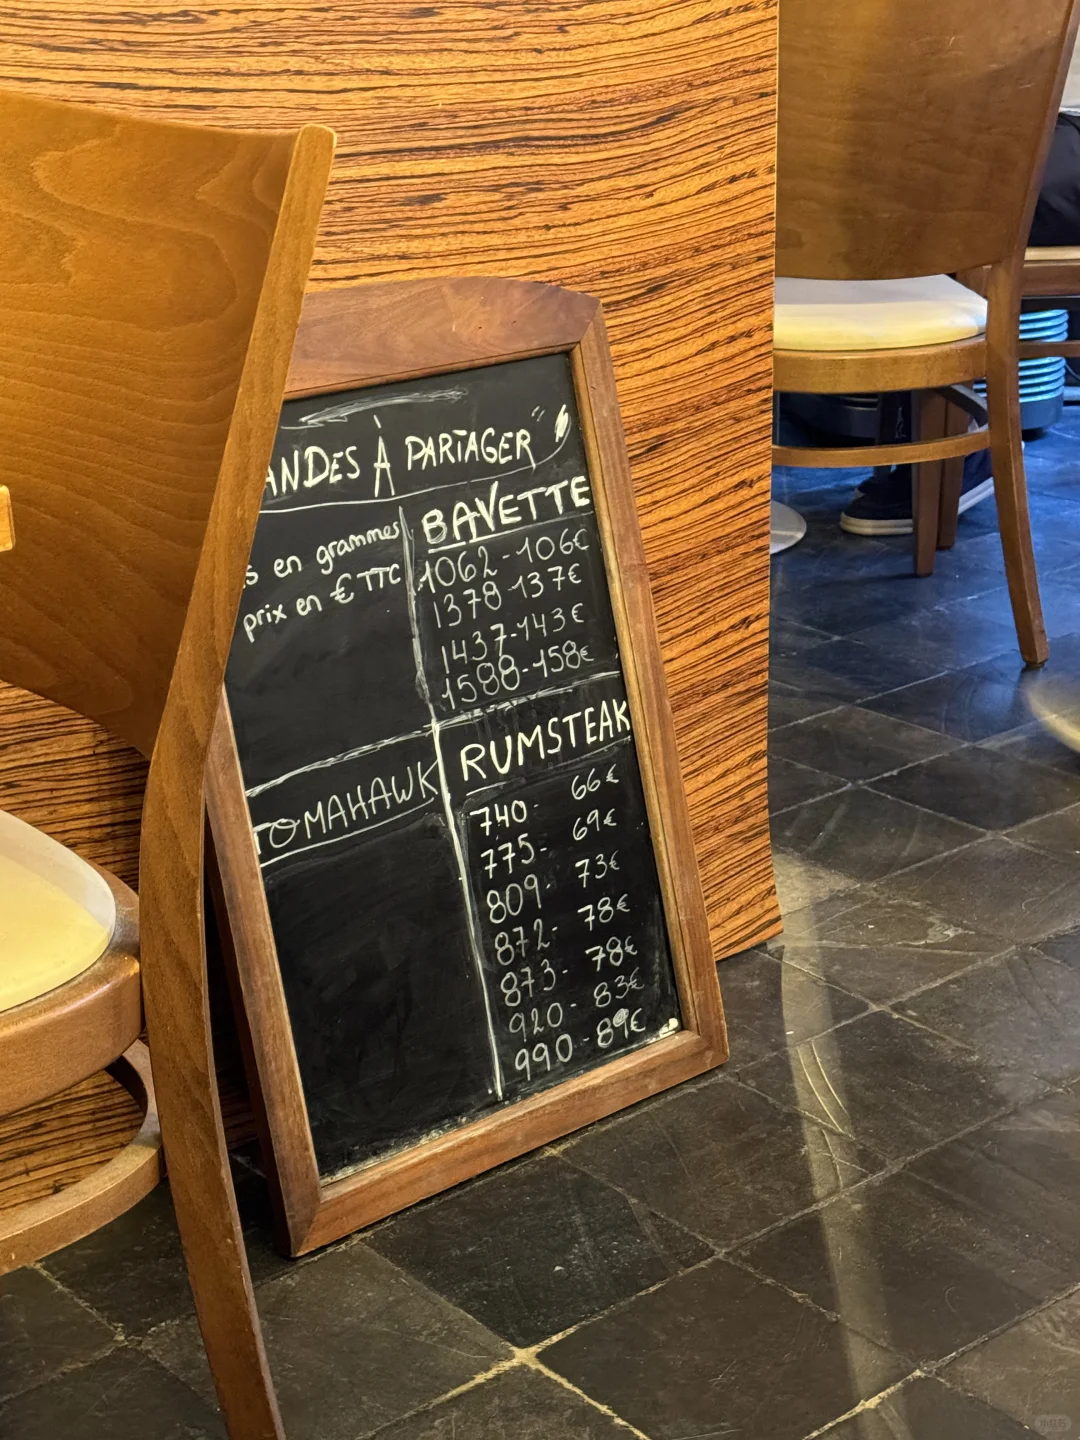 ANDES À PARTAGER"
s en grammes
prix en € TTC
BAVETTE
1062-106€
1378-137€
1437-143€
1588-158€
TOMAHAWK
RUMSTEAK
740- 66€
775- 69€
809- 73€
872- 78€
873- 78€
920- 83€
990-89€